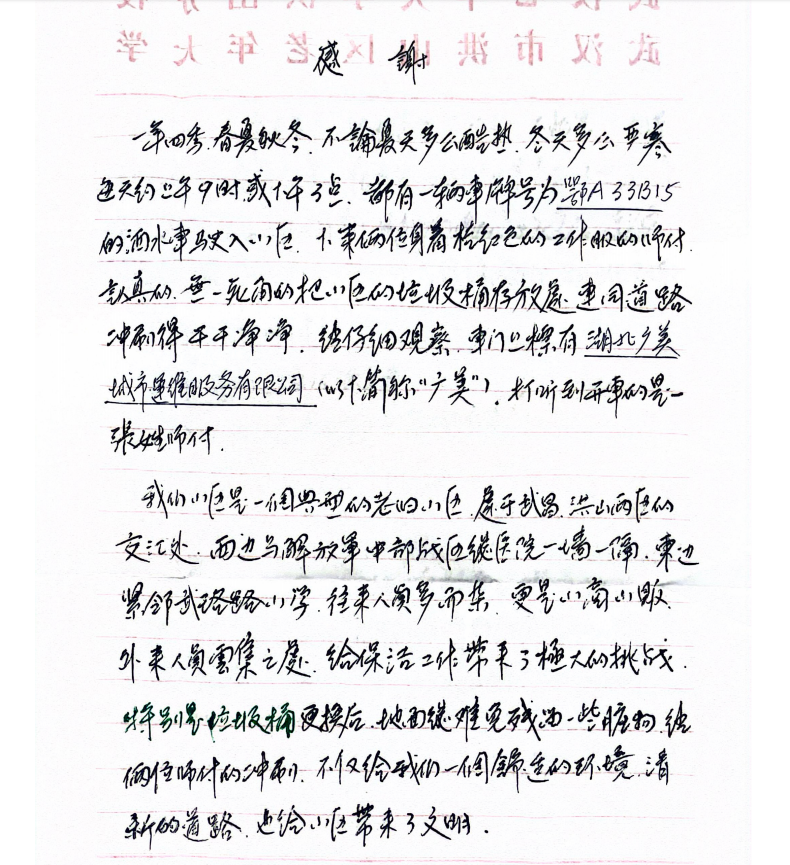 武汉市洪山区老年大学
感謝
一年四季.春夏秋冬.不論夏天多么酷热.冬天多么严寒
每天约上午9时或下午3点.都有一辆車牌号为鄂A33B15
的洒水車驶入小区.下来俩位身着桔红色的工作服的师付.
認真的.無一死角的把小区的垃圾桶存放處.連同道路
冲刷得干干净净.经仔细观察.車门上標有湖北广美
城市運维服务有限公司(以下简称"广美").打听到开車的是一
張姓师付.
我们小区是一個典型的老旧小区.處于武昌.洪山两区的
交汇处.西边与解放軍中部战区総医院一墙一隔.東边
紧邻武珞路小学.往来人員多而杂.更是小商小贩.
外来人員雲集之處.给保洁工作带来了極大的挑战.
特别是垃圾桶更换后.地面総难免残留一些脏物.经
俩位师付的冲刷.不仅给我们一個舒适的环境.清
新的道路.也给小区带来了文明.